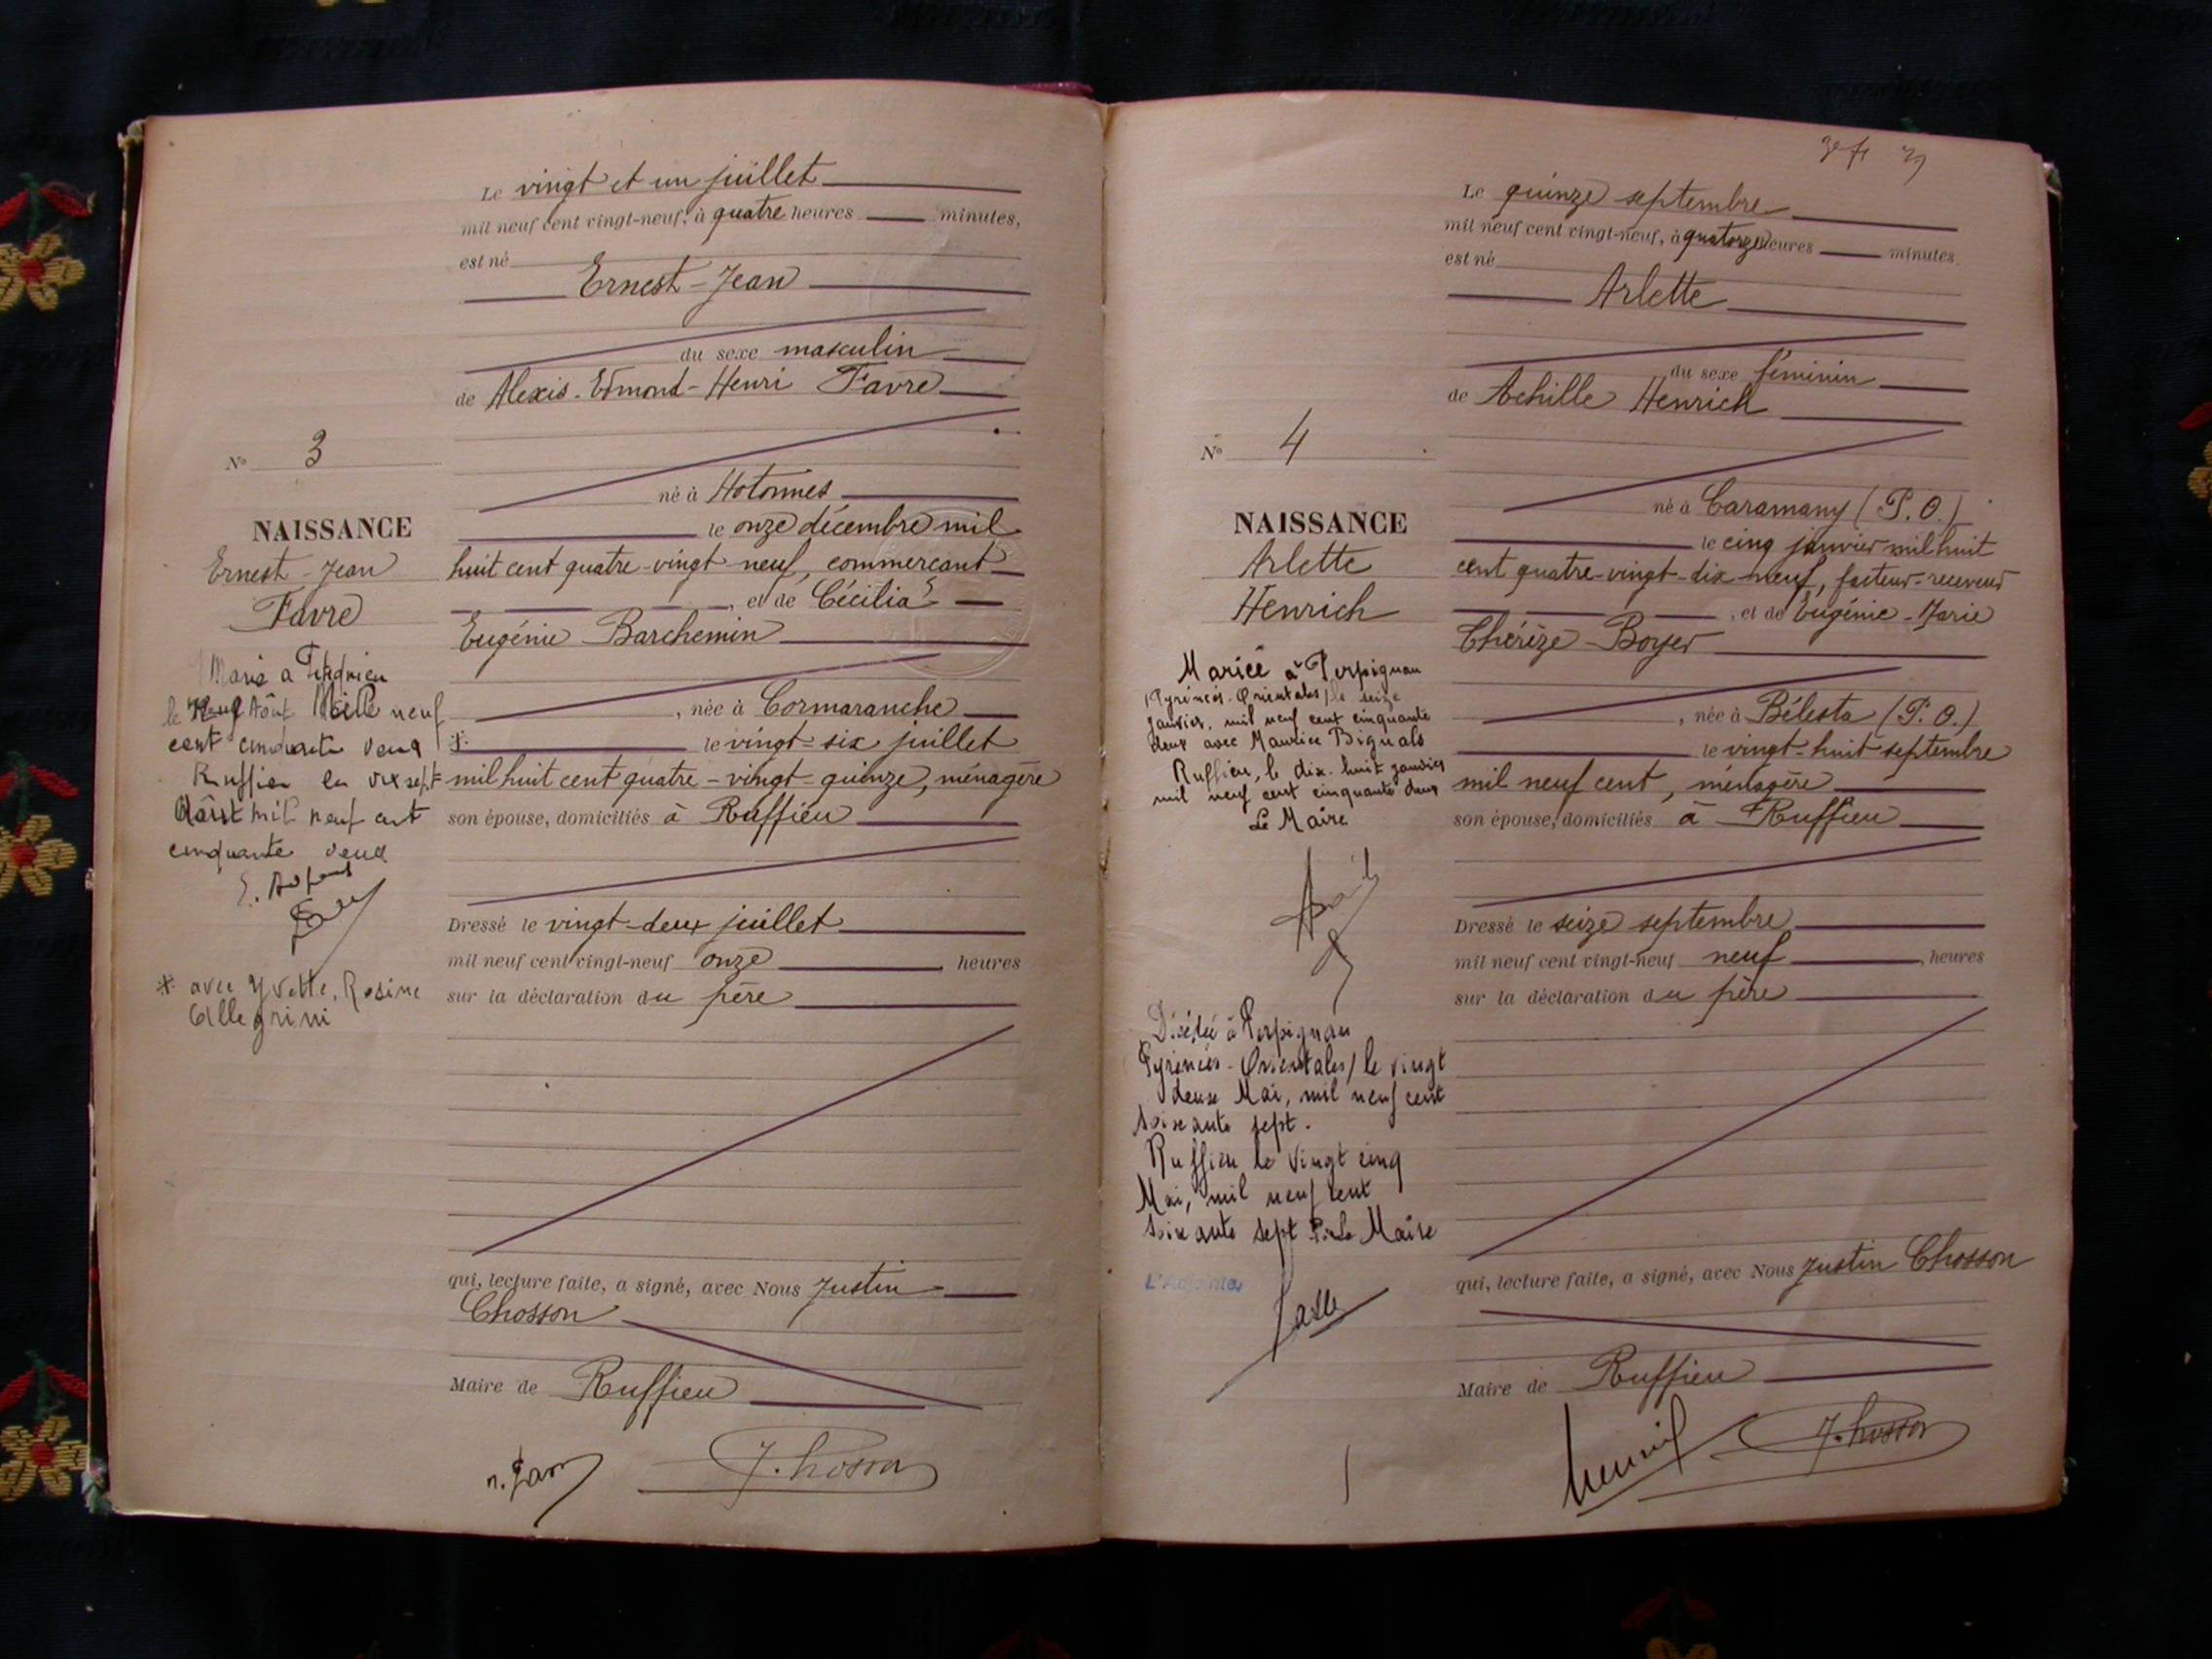 Le vingt et un juillet
mil neuf cent vingt-neuf, à quatre heures minutes,
est né
Ernest-Jean
du sexe masculin
de Alexis-Edmond-Henri Favre
né à Hotonnes
le onze décembre mil
huit cent quatre-vingt-neuf, commerçant
, et de Cécilia
Eugénie Barchemin
, née à Cormaranche
le vingt-six juillet
mil huit cent quatre-vingt-quinze, ménagère
son épouse, domiciliés à Ruffieu
Dressé le vingt-deux juillet
mil neuf cent vingt-neuf onze, heures
sur la déclaration du père
qui, lecture faite, a signé, avec Nous Justin
Chosson
Maire de Ruffieu
J. Chosson
N° 3
NAISSANCE
Ernest-Jean
Favre
Marié a
le Neuf Août Mille neuf
cent cinquante deux *
Ruffieu le dix sept
Août mil neuf cent
cinquante deux
* avec Yvette, Rosine
Allegrini
Le quinze septembre
mil neuf cent vingt-neuf, à quatorze heures minutes
est né
Arlette
du sexe féminin
de Achille Henrich
né à Caramany (P.O.)
le cinq janvier mil huit
cent quatre-vingt-dix-neuf, facteur-receveur
, et de Eugénie-Marie
Thérèze Boyer
, née à Bélesta (P.O.)
le vingt-huit septembre
mil neuf cent, ménagère
son épouse, domiciliés à Ruffieu
Dressé le seize septembre
mil neuf cent vingt-neuf neuf, heures
sur la déclaration du père
qui, lecture faite, a signé, avec Nous Justin Chosson
Maire de Ruffieu
Henrich J. Chosson
N° 4
NAISSANCE
Arlette
Henrich
Mariée à Perpignan
(Pyrénées-Orientales) le seize
janvier, mil neuf cent cinquante
deux avec Maurice Bignals
Ruffieu, le dix-huit janvier
mil neuf cent cinquante deux
Le Maire
Décédée à Perpignan
Pyrénées-Orientales) le vingt
deux Mai, mil neuf cent
soixante sept.
Ruffieu le vingt cinq
Mai, mil neuf cent
soixante sept P. Le Maire
L'Adjointe,